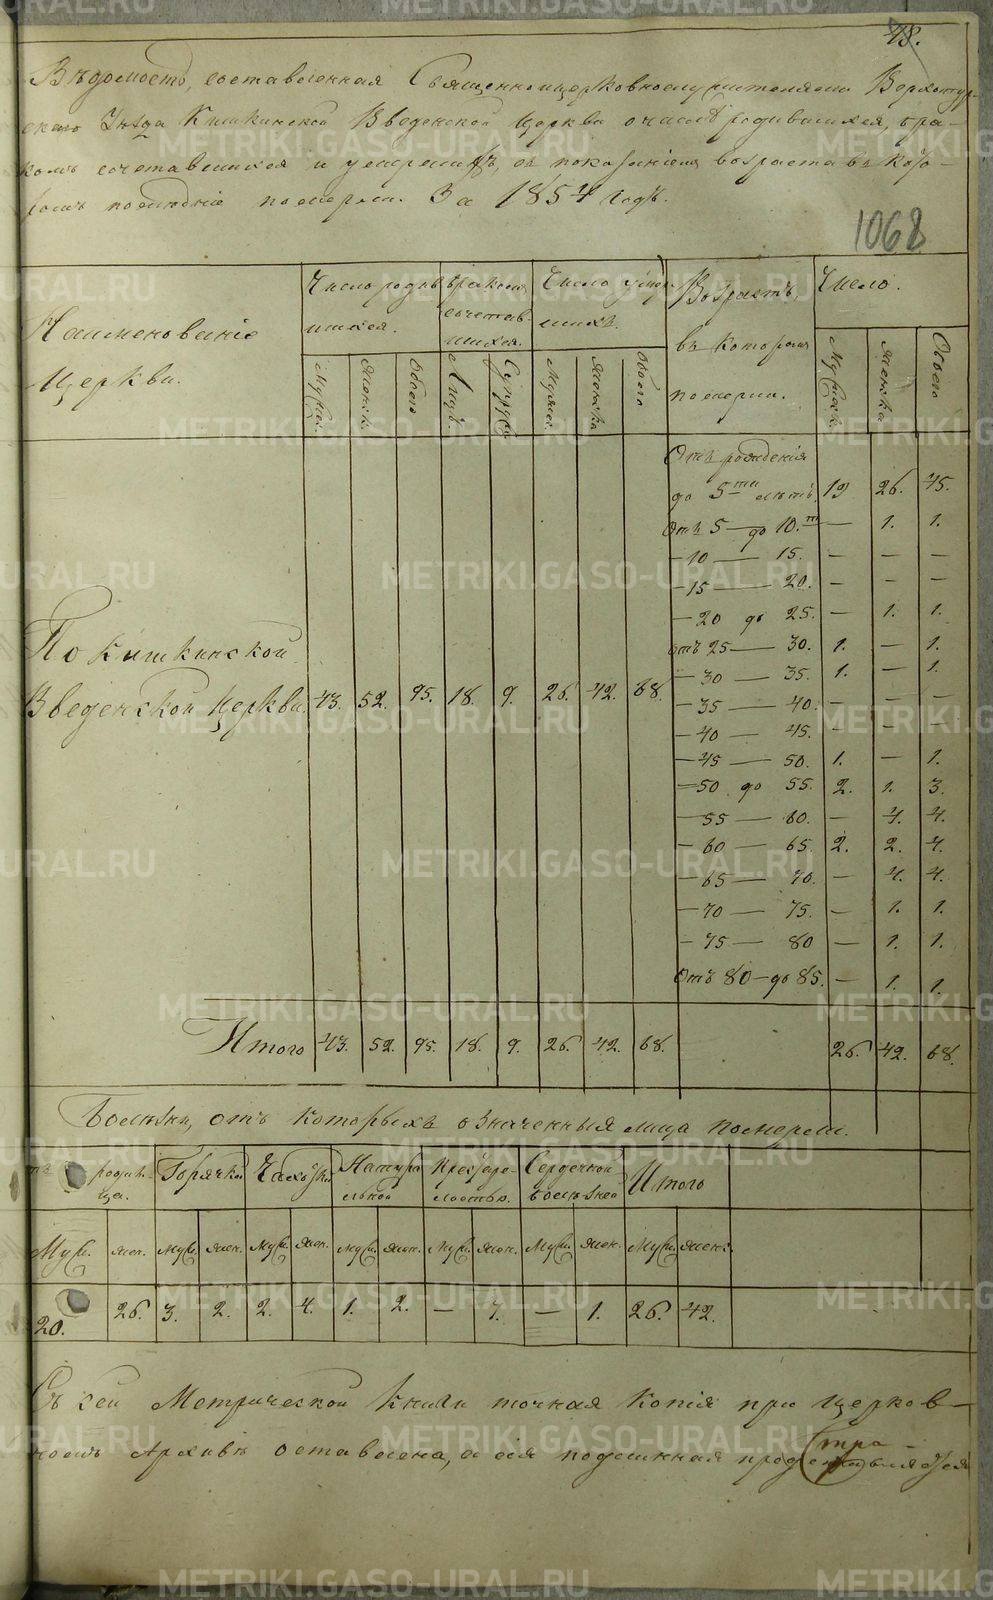 78.
Вѣдомость, составленная Священноцерковнослужителями Верхотур-
скаго Уѣзда Кишкинской Введенской Церкви о числѣ родившихся, бра-
комъ сочетавшихся и умершихъ, съ показаніемъ возраста въ кото-
ромъ послѣдніе померли. За 1854 годъ.
1068
Наименованіе Церкви.
Число родив- шихся.
Бракомъ сочетав- шихся.
Число умер- шихъ.
Возрастъ, въ которомъ померли.
Число.
Мужск. Женск. Обоего Лицъ. Супруж. Мужск. Женска Обоего Мужск. Женска Обоего
Отъ рожденія
до 5ти лѣтъ. 19 26. 45.
Отъ 5 — до 10.ти — 1. 1.
— 10 — 15. — — —
— 15 — 20. — — —
— 20 до 25. — 1. 1.
отъ 25 — 30. 1. — 1.
— 30 — 35. 1. — 1.
— 35 — 40. — — —
— 40 — 45. — — —
— 45 — 50. 1. — 1.
— 50 до 55. 2. 1. 3.
— 55 — 60. — 4. 4.
— 60 — 65. 2. 2. 4.
— 65 — 70. — 4. 4.
— 70 — 75. — 1. 1.
— 75 — 80 — 1. 1.
Отъ 80 — до 85. — 1. 1.
По Кишкинской
Введенской Церкви. 43. 52. 95. 18. 9. 26. 42. 68.
Итого 43. 52. 95. 18. 9. 26. 42. 68. 26. 42. 68.
Болѣзни, отъ которыхъ означенныя лица померли.
родим- ца. Горячки Чахотки Натура- льной Престаре- лостью. Сердечной болѣзней Итого
Муж. жен. муж. жен. Муж. жен. муж. жен. муж. жен. Муж. жен. Муж. женск.
20. 26. 3. 2. 2. 4. 1. 2. — 7. — 1. 26. 42.
Съ сей Метрической книги точная копія при церков-
номъ Архивѣ оставлена, а сія подлинная
METRIKI.GASO-URAL.RU